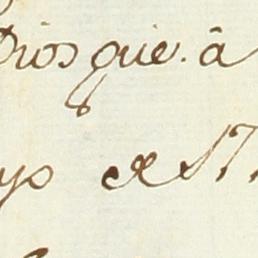 Dios gue. â
yo de 17